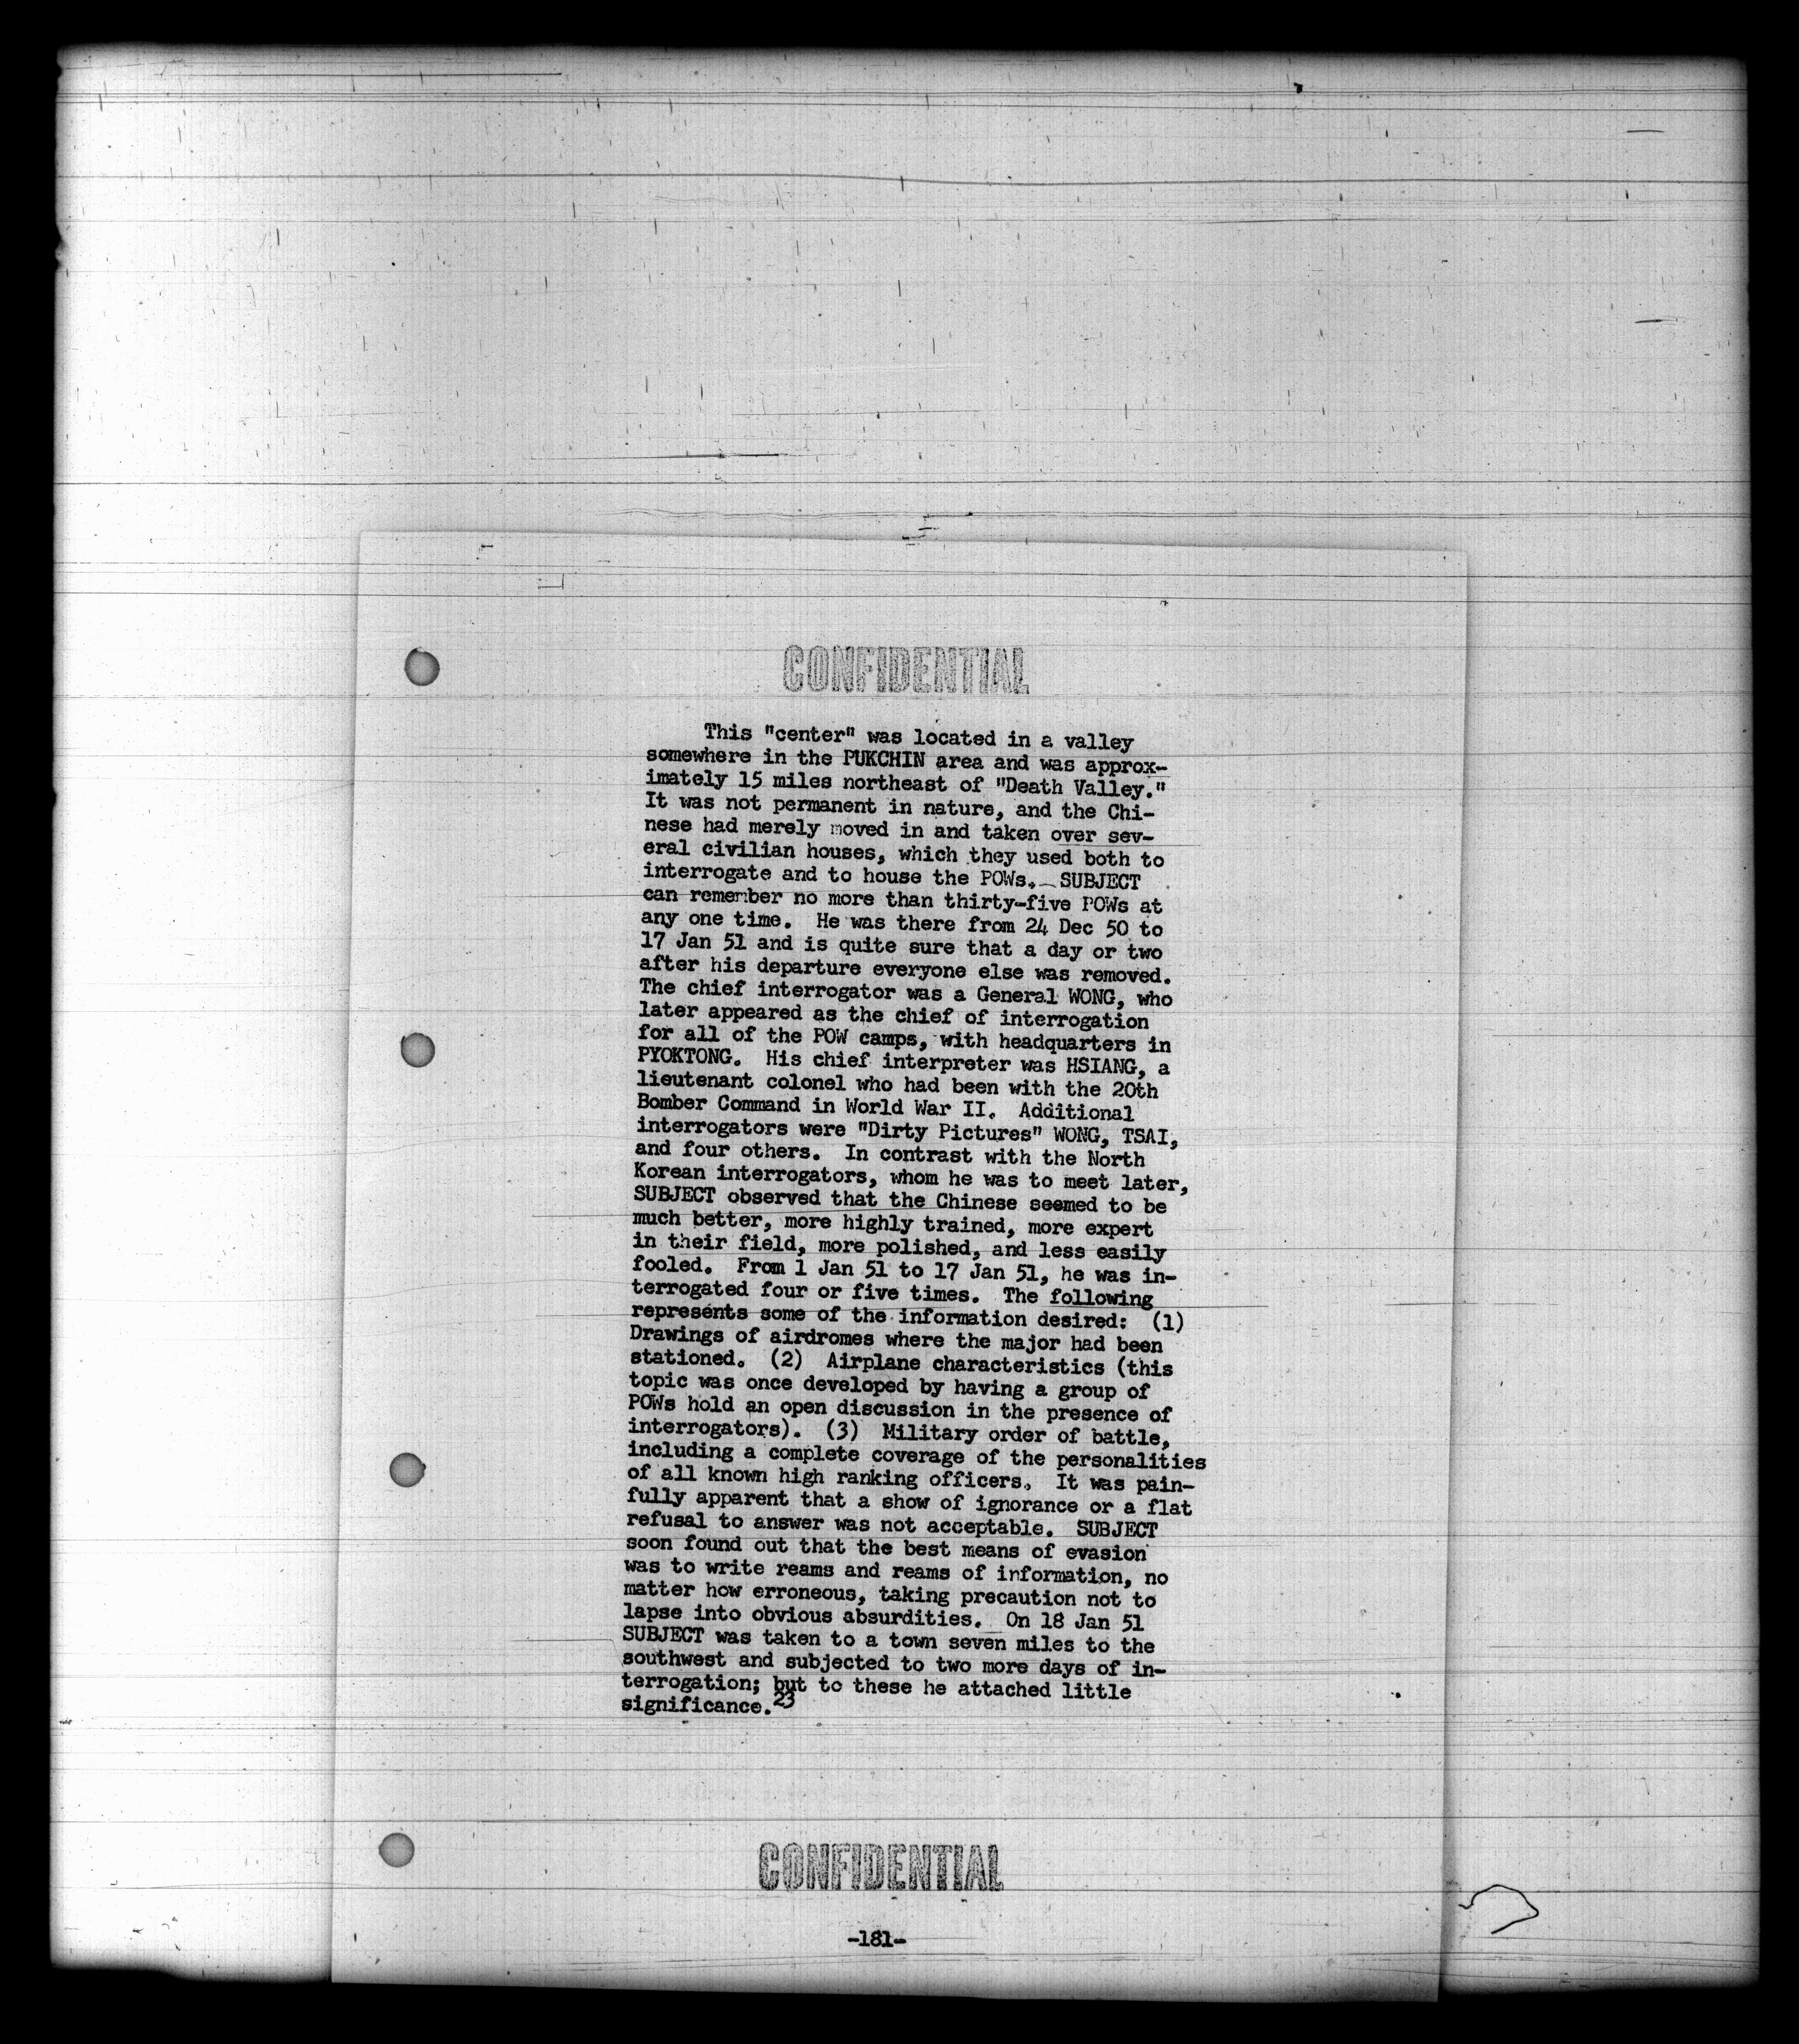 CONFIDENTIAL
This "center" was located in a valley
somewhere in the PUKCHIN area and was approx-
imately 15 miles northeast of "Death Valley."
It was not permanent in nature, and the Chi-
nese had merely moved in and taken over sev-
eral civilian houses, which they used both to
interrogate and to house the POWs. SUBJECT
can remember no more than thirty-five POWs at
any one time. He was there from 24 Dec 50 to
17 Jan 51 and is quite sure that a day or two
after his departure everyone else was removed.
The chief interrogator was a General WONG, who
later appeared as the chief of interrogation
for all of the POW camps, with headquarters in
PYOKTONG. His chief interpreter was HSIANG, a
lieutenant colonel who had been with the 20th
Bomber Command in World War II. Additional
interrogators were "Dirty Pictures" WONG, TSAI,
and four others. In contrast with the North
Korean interrogators, whom he was to meet later,
SUBJECT observed that the Chinese seemed to be
much better, more highly trained, more expert
in their field, more polished, and less easily
fooled. From 1 Jan 51 to 17 Jan 51, he was in-
terrogated four or five times. The following
represents some of the information desired: (1)
Drawings of airdromes where the major had been
stationed. (2) Airplane characteristics (this
topic was once developed by having a group of
POWs hold an open discussion in the presence of
interrogators). (3) Military order of battle,
including a complete coverage of the personalities
of all known high ranking officers. It was pain-
fully apparent that a show of ignorance or a flat
refusal to answer was not acceptable. SUBJECT
soon found out that the best means of evasion
was to write reams and reams of information, no
matter how erroneous, taking precaution not to
lapse into obvious absurdities. On 18 Jan 51
SUBJECT was taken to a town seven miles to the
southwest and subjected to two more days of in-
terrogation; but to these he attached little
significance.23
CONFIDENTIAL
-181-